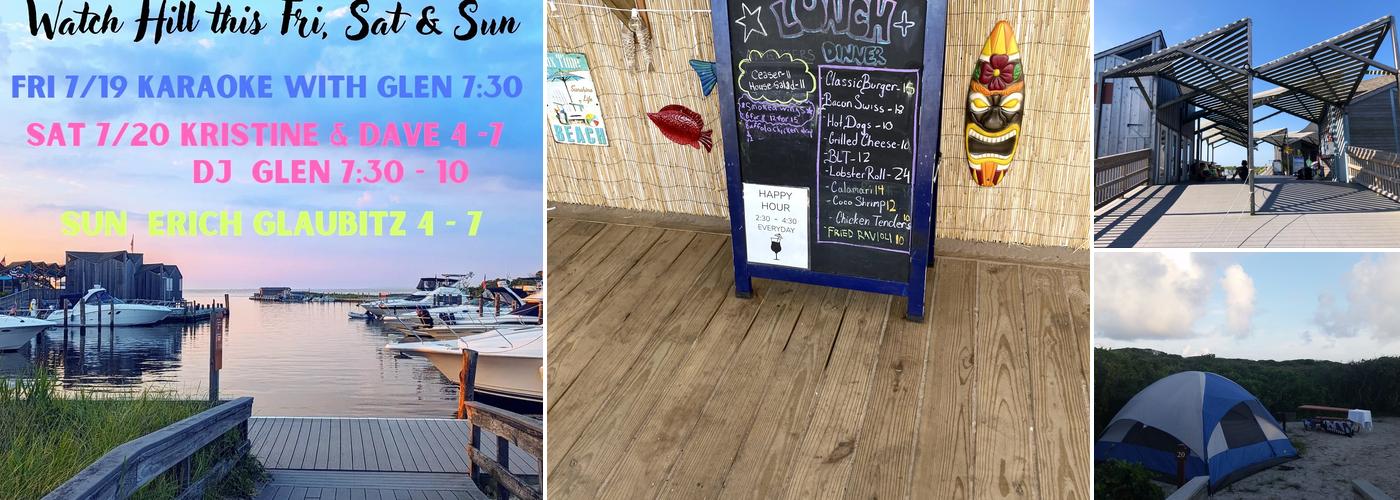 Watch Hill this Fri, Sat & Sun
FRI 7/19 KARAOKE WITH GLEN 7:30
SAT 7/20 KRISTINE & DAVE 4 -7
DJ GLEN 7:30 - 10
SUN ERICH GLAUBITZ 4 - 7
Time
Sunshine
Life
BEACH
LUNCH +
DINNER
Ceaser-11
House Salad-11
ClassicBurger-
Bacon Swiss -18
-Hot Dogs -10
-Grilled Cheese-10
-BLT-12
-LobsterRoll-24
-Calamari 14
-Coco Shrimp 12
-Chicken Tenders 10
-FRIED RAVIOLI 10
HAPPY
HOUR
2:30 - 4:30
EVERYDAY
20